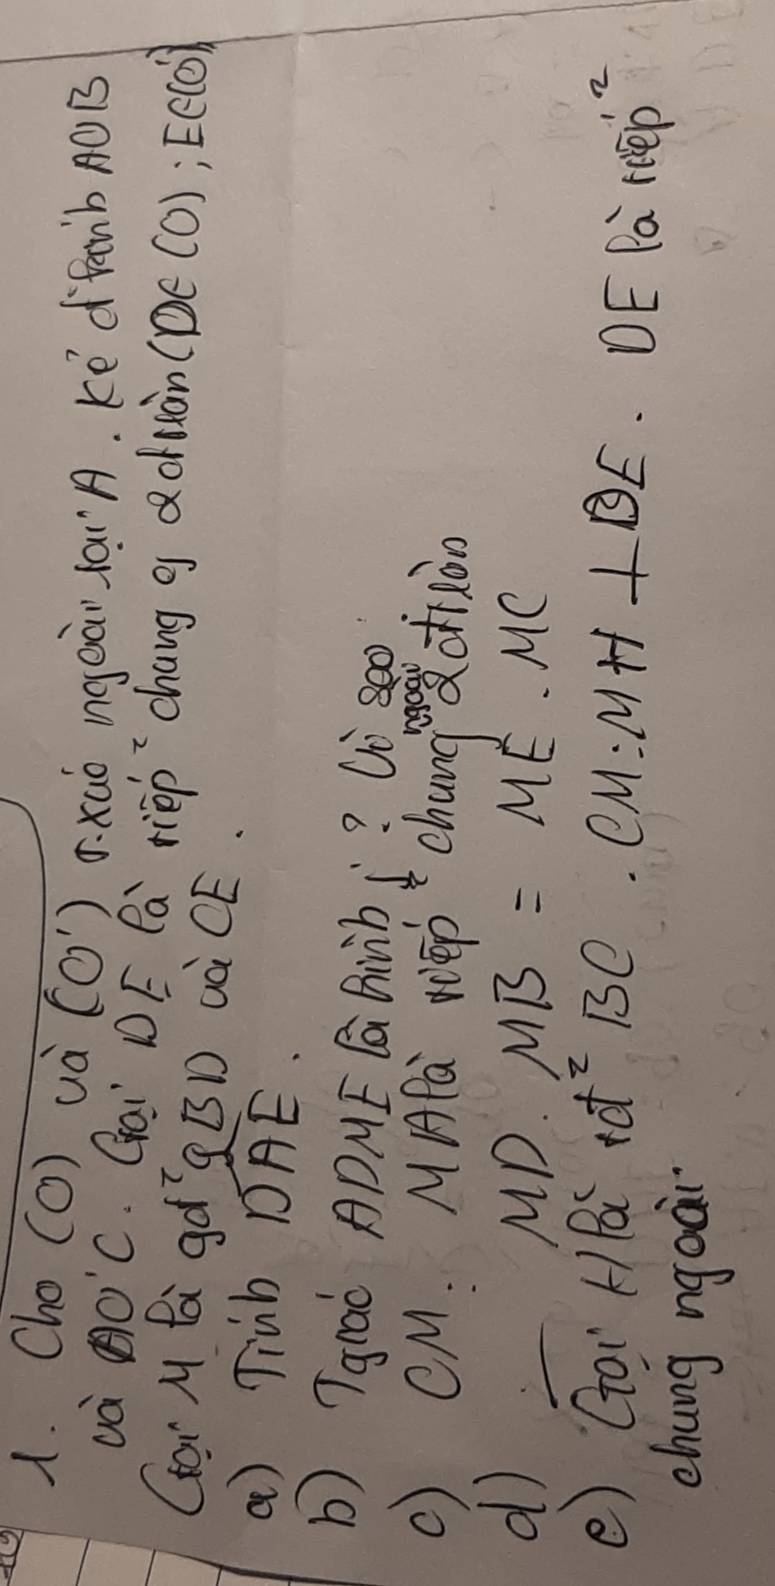 1. Cho (O) và (O') t.xúc ngoài tại A. Kẻ đ² kính AOB
và AO'C. Gọi DE là tiếp² chung of 2 đtròn (D∈(O); E∈(O'))
Gọi M là gđ² of BD và CE.
a) Tính DAE.
b) Tgiác ADME là hình j? Vì sao
c) CM: MA là tiếp² chung 2 đtròn
d) MD. MB = ME. MC
e) Gọi H là tđ² BC. CM: MH ⊥ DE. DE là tiếp²
chung ngoài